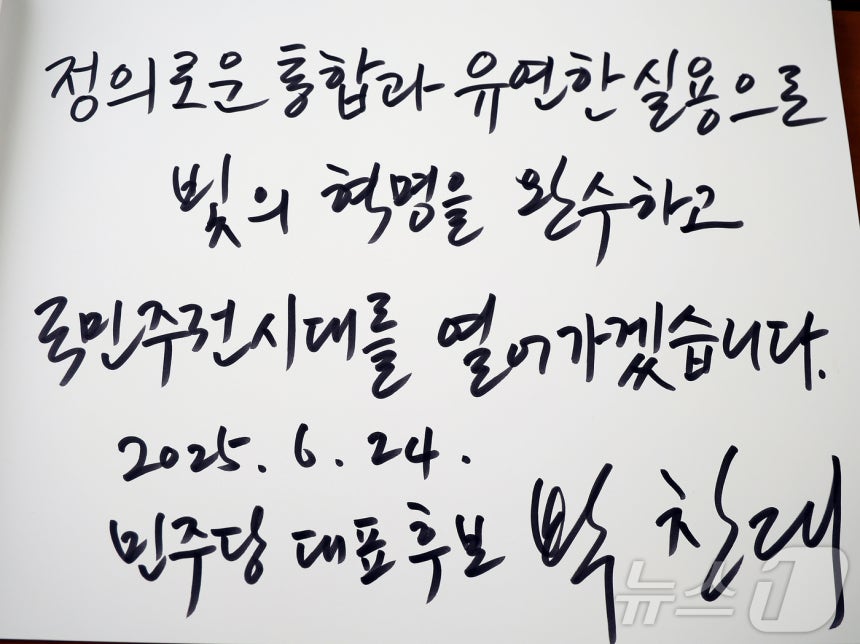 정의로운 통합과 유연한 실용으로
빛의 혁명을 완수하고
국민주권시대를 열어가겠습니다.
2025. 6. 24.
민주당 대표후보 박찬대
뉴스1